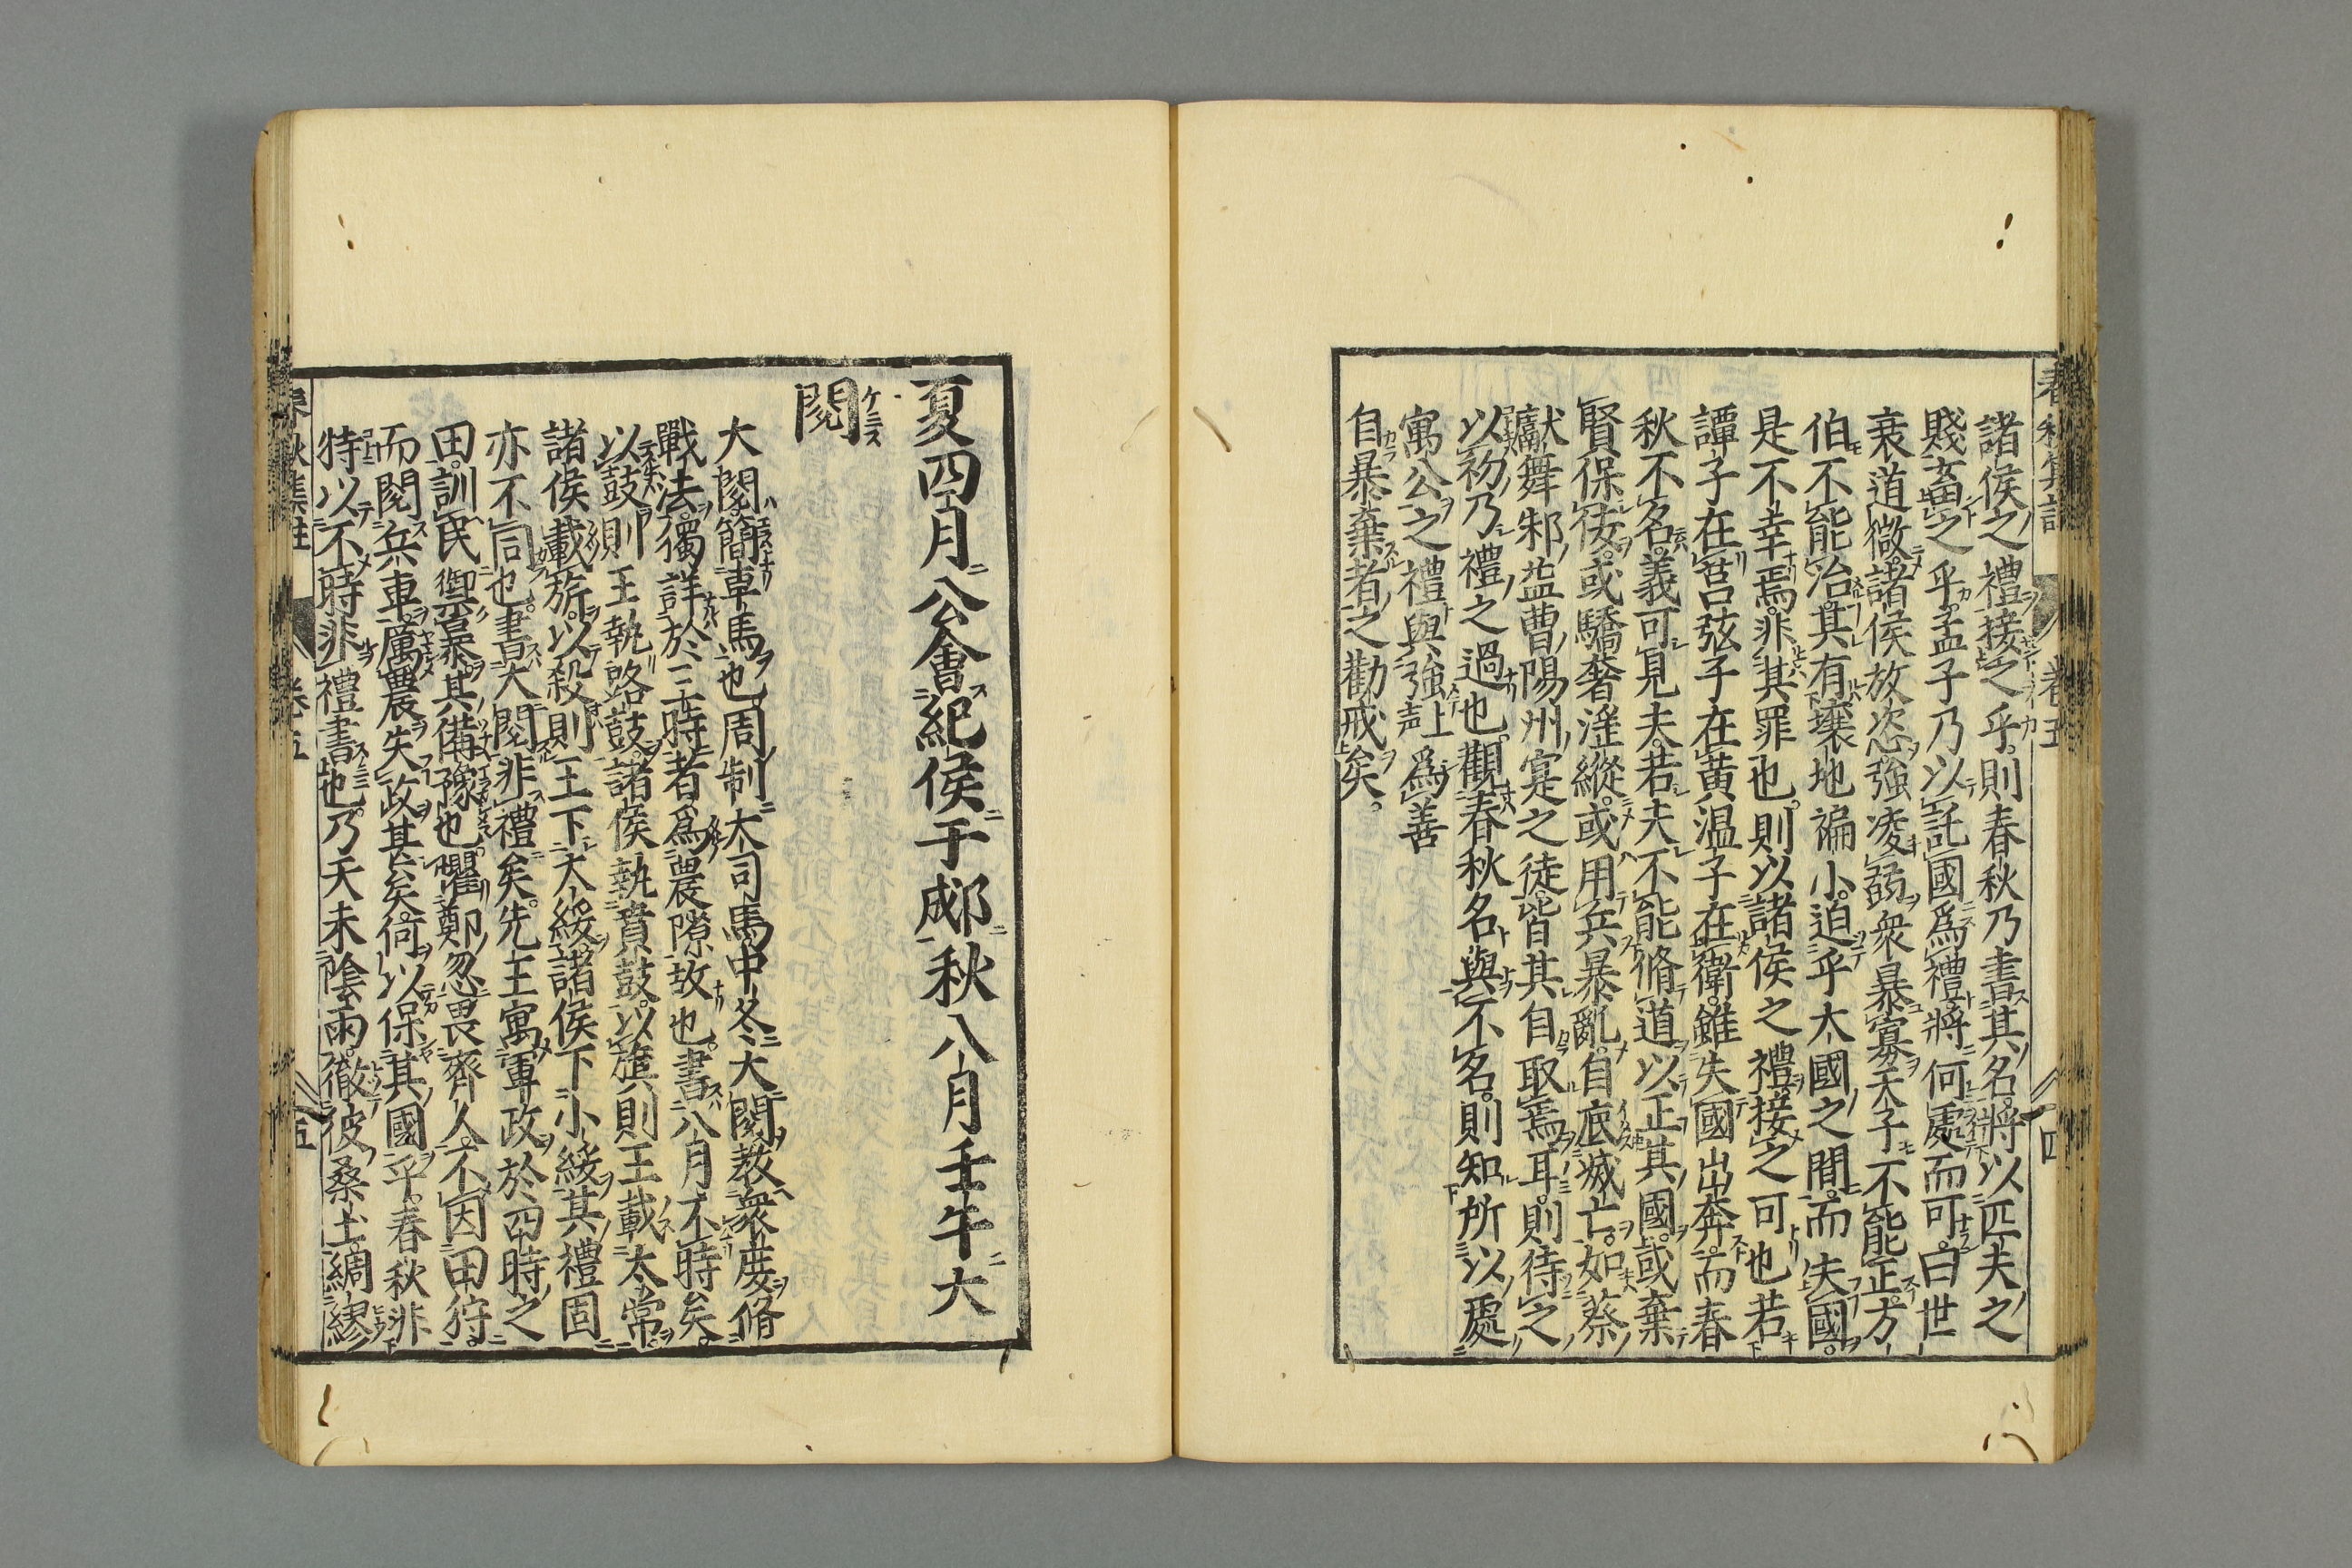 諸侯之禮接之乎則春秋乃書其名將以匹夫之
賤畜之乎孟子乃以託國爲禮將何處而可曰世
衰道微諸侯放恣強凌弱衆暴寡天子不能正方
伯不能治其有壤地褊小迫乎大國之間而失國
是不幸焉非其罪也則以諸侯之禮接之可也若
譚子在莒弦子在黄温子在衛雖失國出奔而春
秋不名義可見夫若夫不能脩道以正其國或棄
賢保佞或驕奢淫縱或用兵暴亂自底滅亡如蔡
獻舞邾益曹陽州寔之徒皆其自取焉耳則待之
以初乃禮之過也觀春秋名與不名則知所以處
寓公之禮與強上声爲善
自暴棄者之勸戒矣
春秋集註 卷五 四
夏四月公會紀侯于郕秋八月壬午大
閱
大閱簡車馬也周制大司馬中冬大閱教衆庶脩
戰法獨詳於三時者爲農隙故也書八月不時矣
以鼓則王執路鼓諸侯執賁鼓以旗則王載太常
諸侯載旂以殺則王下大綏諸侯下小綏其禮固
亦不同也書大閱非禮矣先王寓軍政於四時之
田訓民禦暴其備豫也懼鄭忽畏齊人不因田狩
而閱兵車厲農失政甚矣何以保其國乎春秋非
特以不時非禮書也乃天未陰雨徹彼桑土綢繆
春秋集註 卷五 五